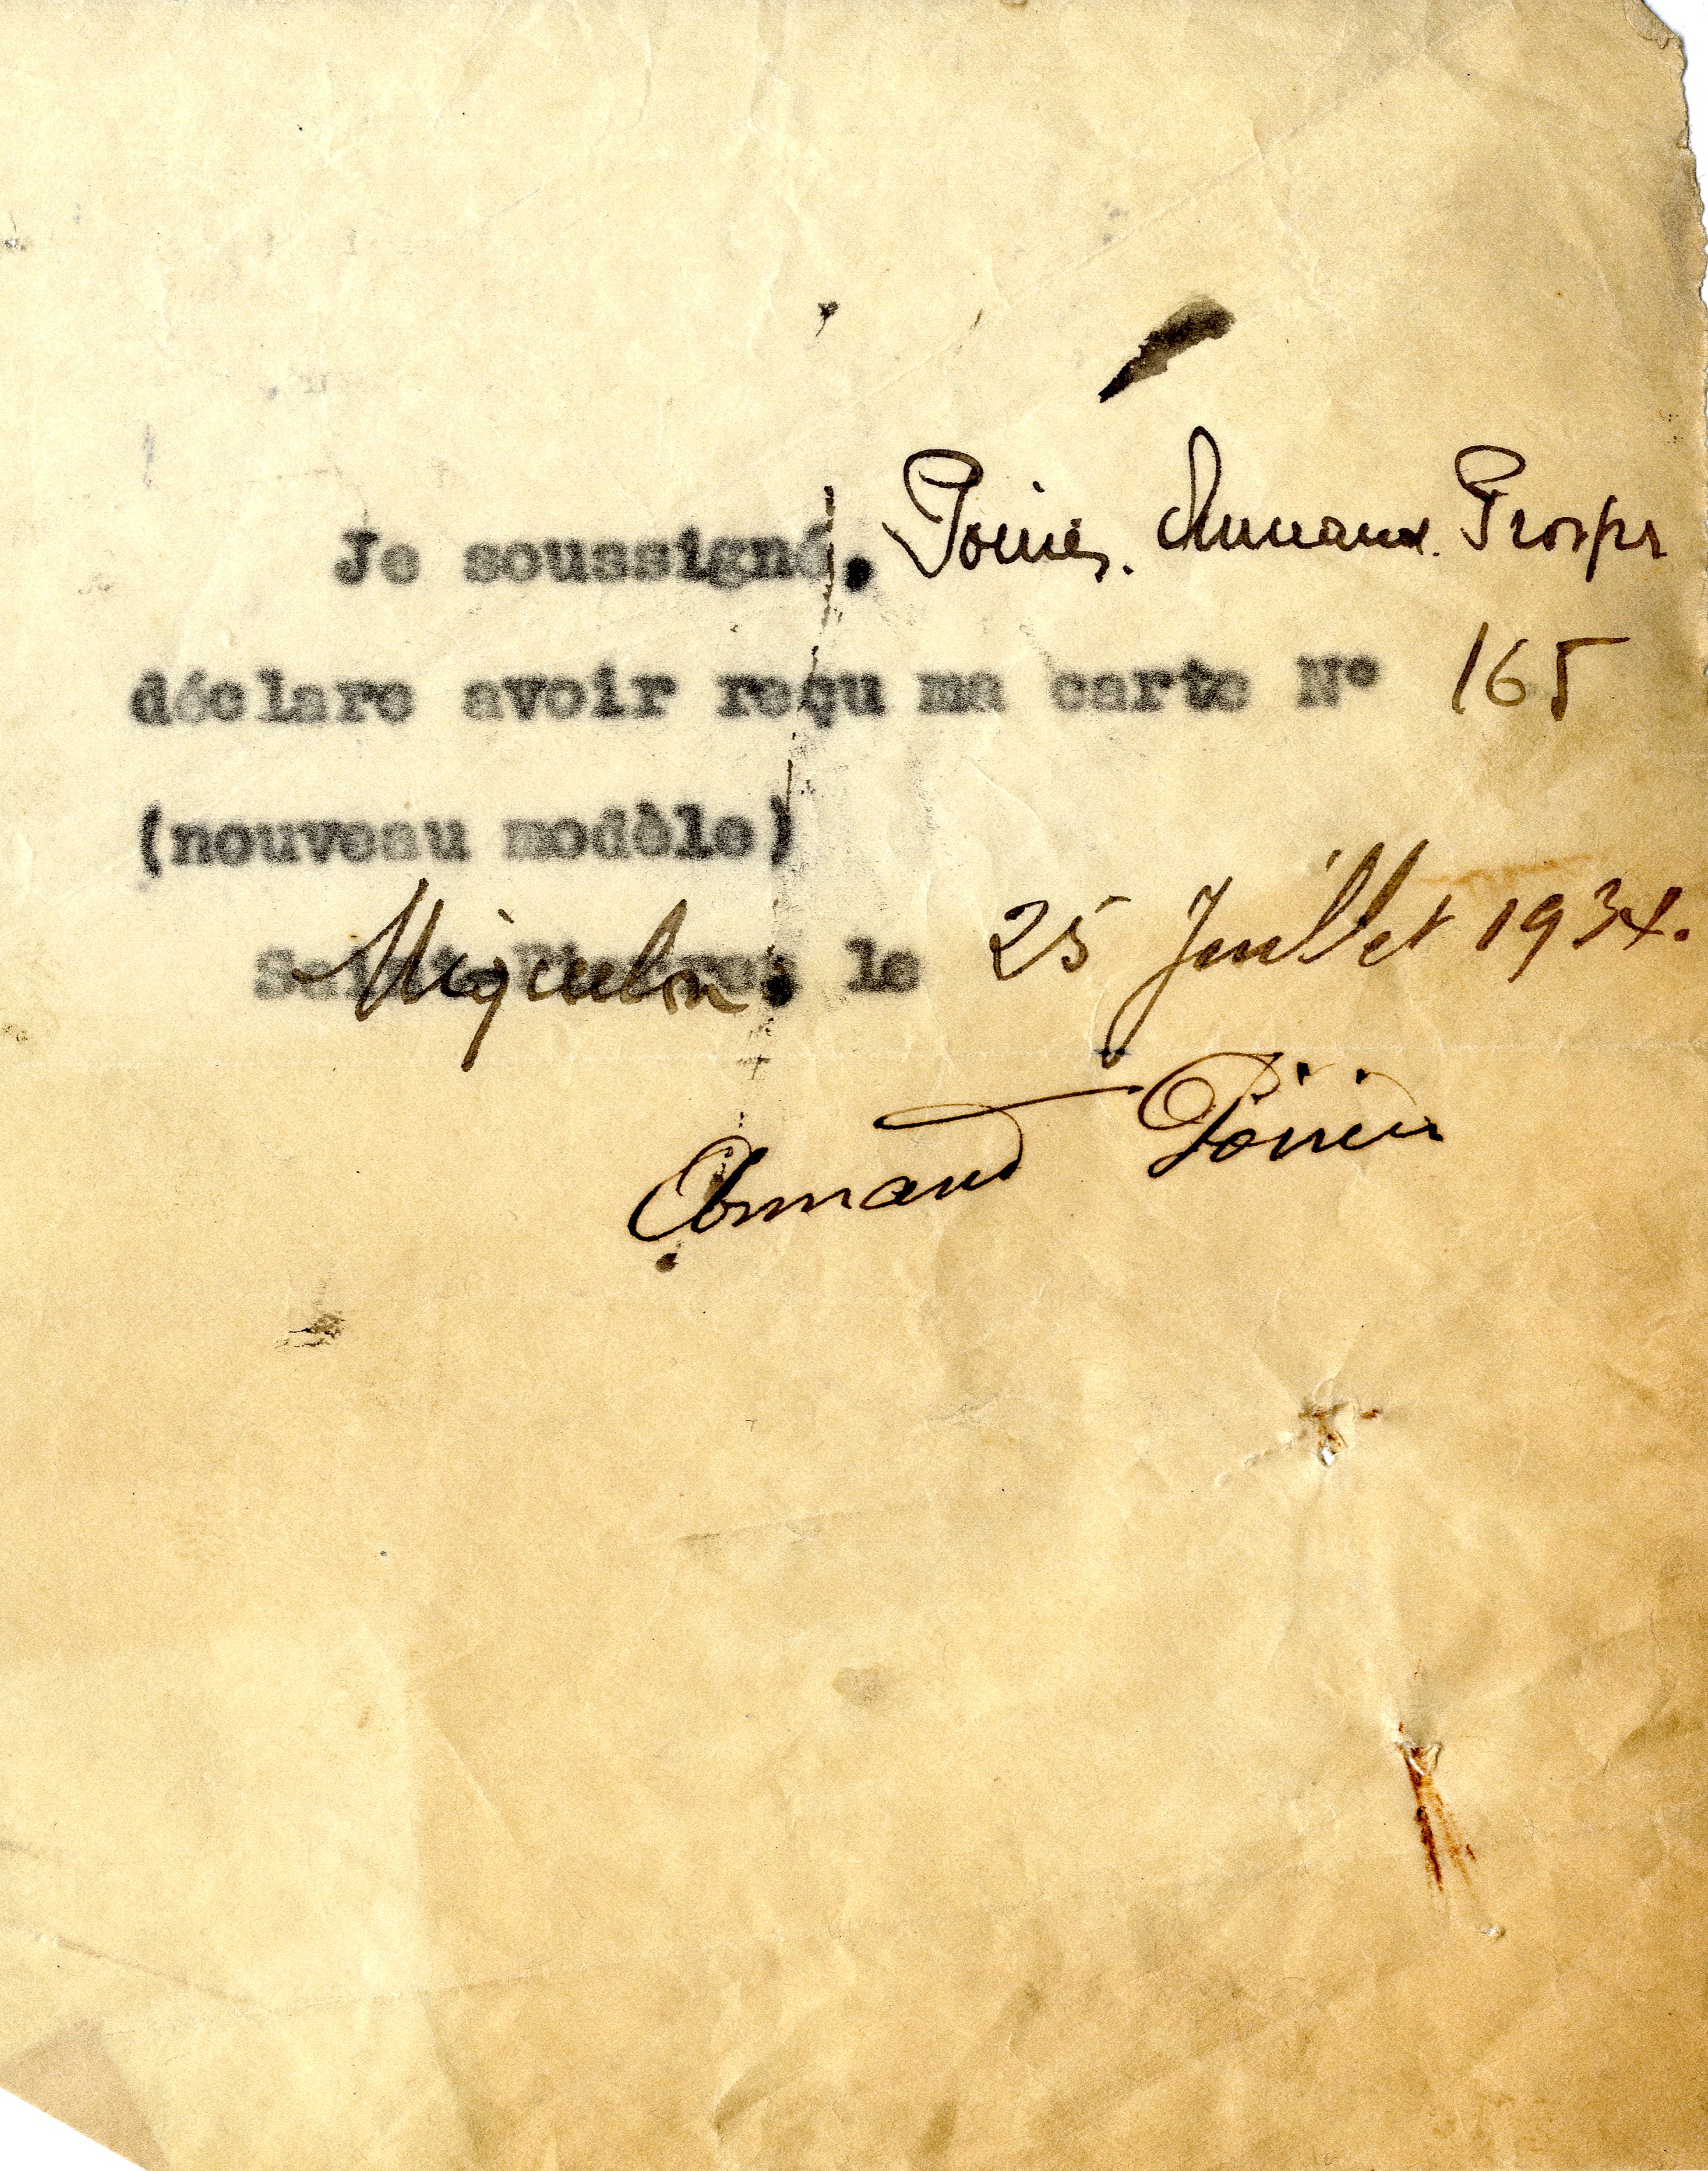 Je soussigné, Poirier. Armand. Prosper
déclare avoir reçu ma carte N° 165
(nouveau modèle)
Saint-Pierre, Miquelon le 25 Juillet 1934.
Armand Poirier